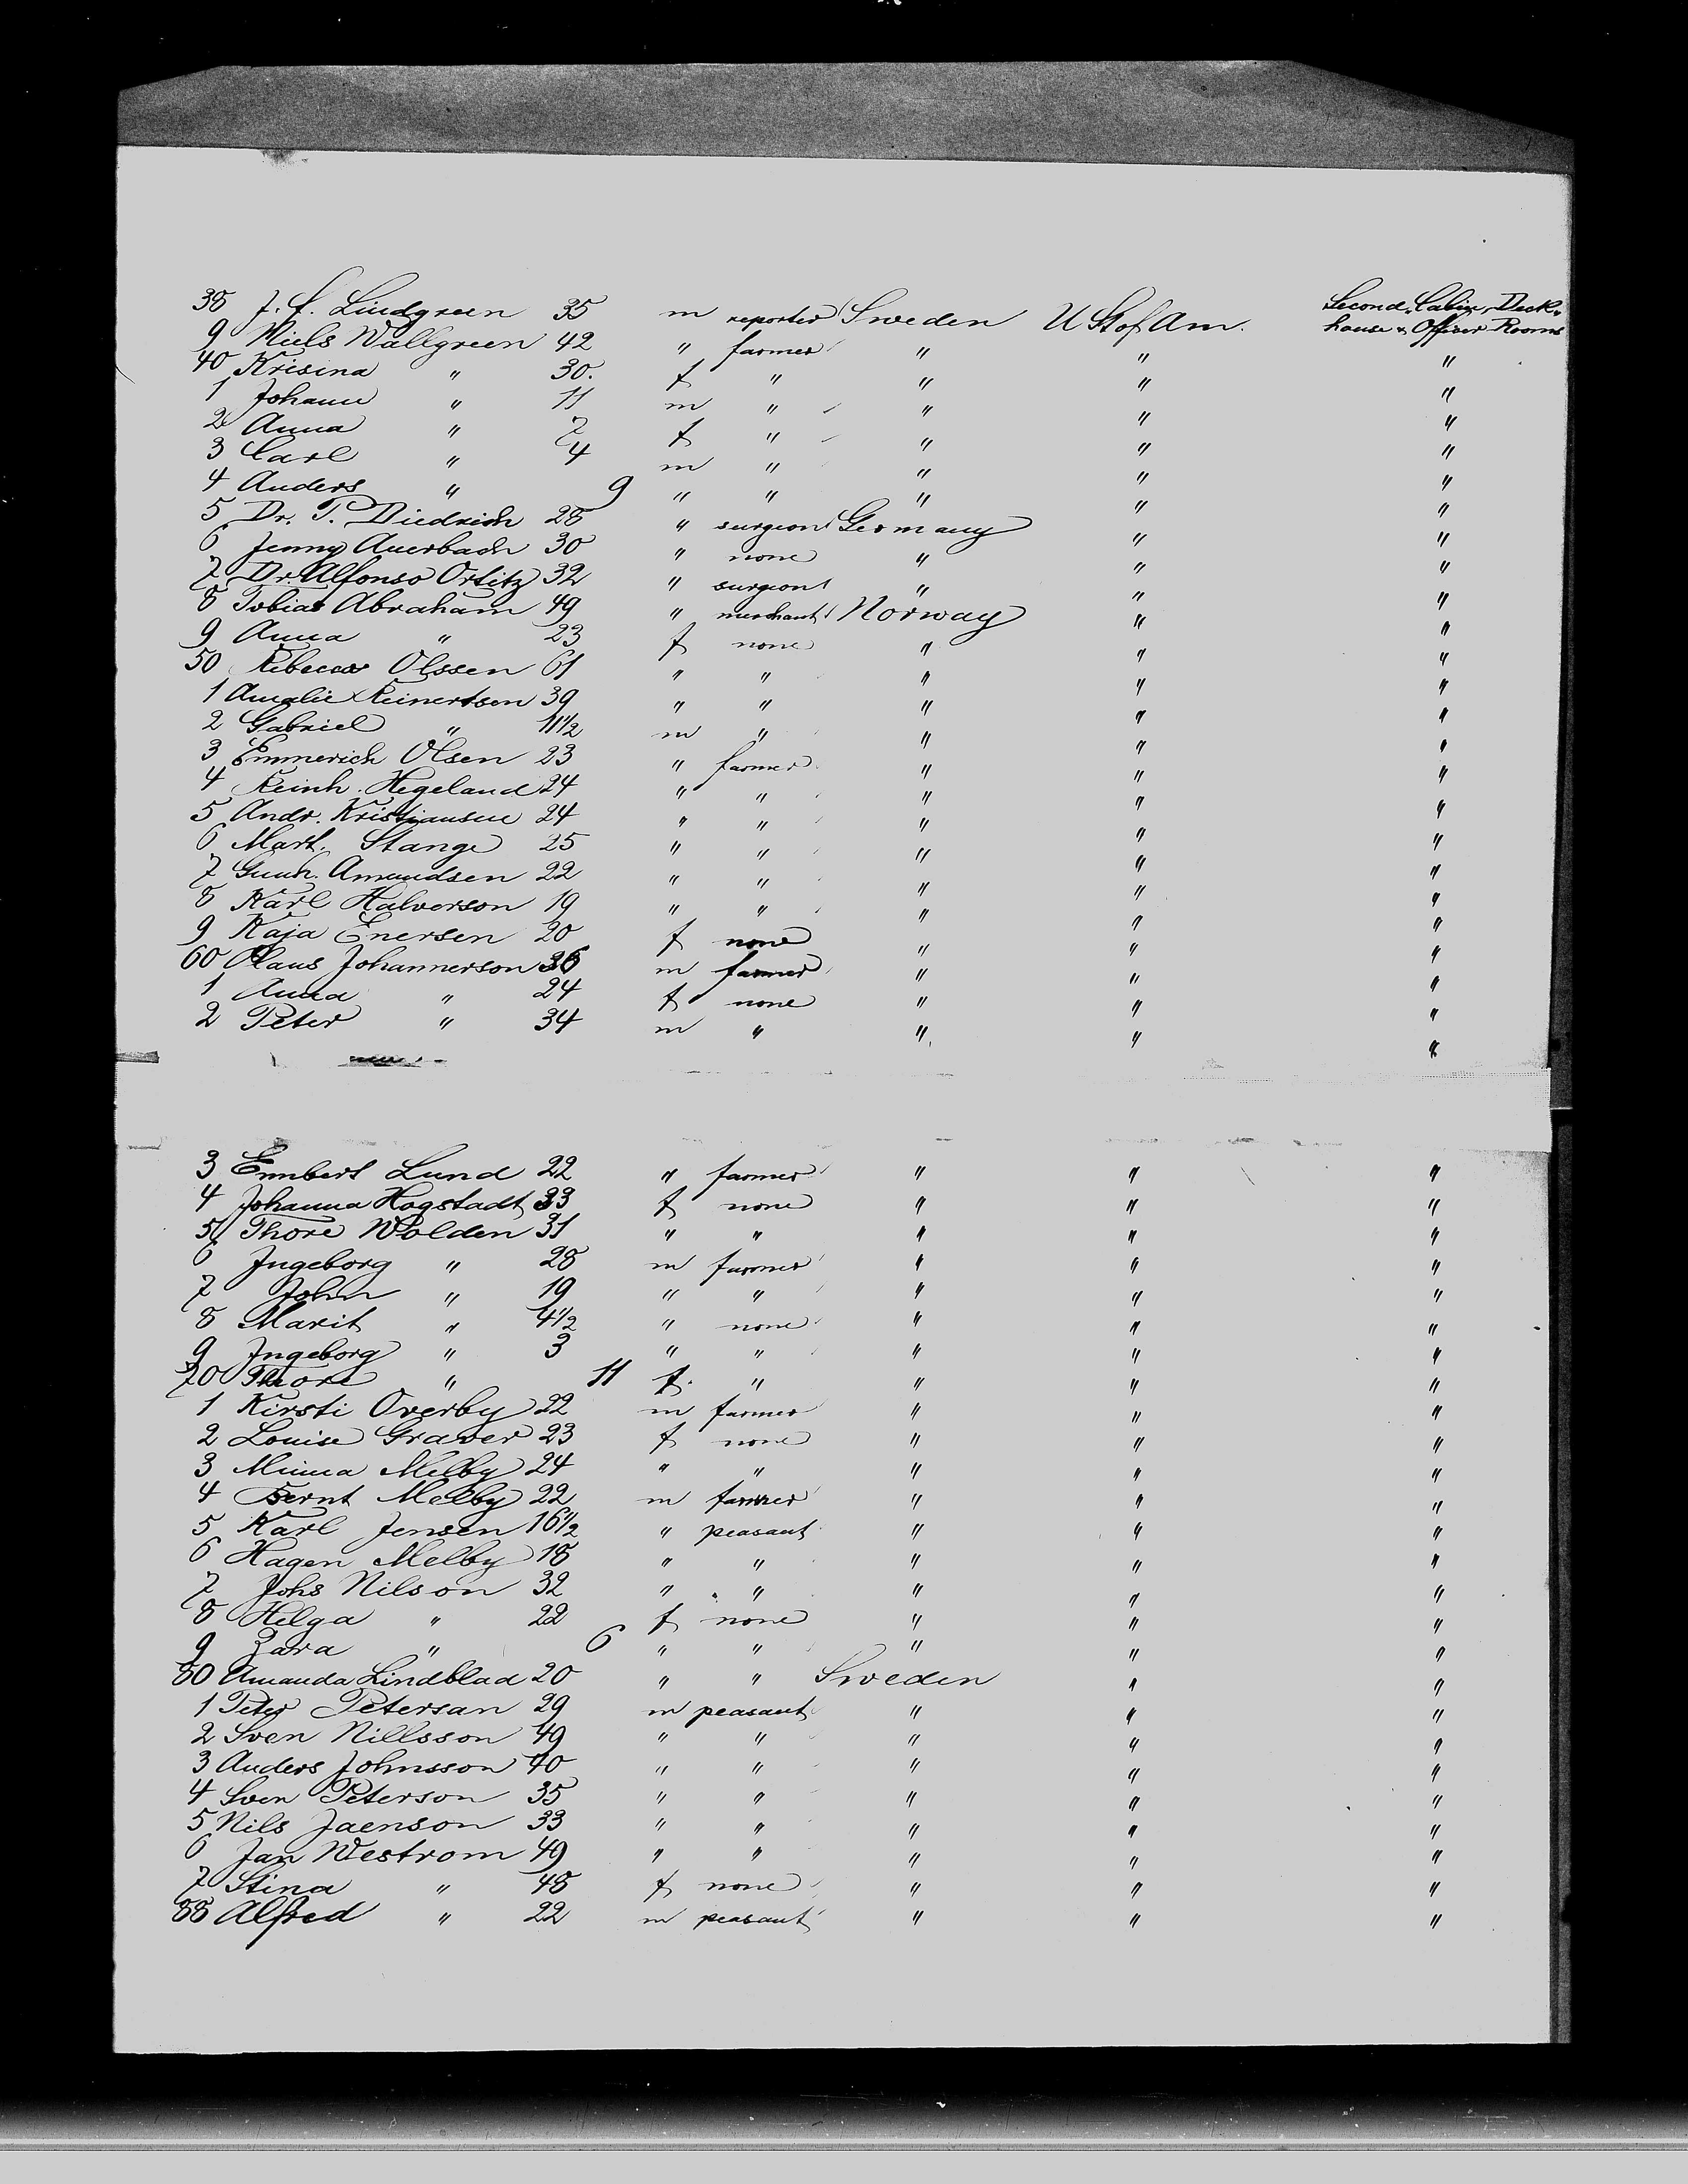 38 J. f. Lindgreen 35 m reporter Sweden U St of Am. Second Cabin, Deck-
house & Officer Rooms
9 Niels Wallgreen 42 " farmer " " "
40 Krisina " 30. f " " " "
1 Johann " 11 m " " " "
2 Anna " 7 f " " " "
3 Carl " 4 m " " " "
4 Anders " 9 " " " " "
5 Dr. P. Diedrich 28 " surgeon Germany " "
6 Jenny Auerbach 30 " none " " "
7 Dr. Alfonso Ortitz 32 " surgeon " " "
8 Tobias Abraham 49 " merchant Norway " "
9 Anna " 23 f none " " "
50 Rebecca Olssen 61 " " " " "
1 Amalie Reinertsen 39 " " " " "
2 Gabriel " 11 1/2 m " " " "
3 Emmerich Olsen 23 " farmer " " "
4 Reinh. Hegeland 24 " " " " "
5 Andr. Kristiansen 24 " " " " "
6 Mart. Stange 25 " " " " "
7 Gunh. Amundsen 22 " " " " "
8 Karl Halverson 19 " " " " "
9 Kaja Enersen 20 f none " " "
60 Olaus Johannerson 36 m farmer " " "
1 Anna " 24 f none " " "
2 Peter " 34 m " " " "
3 Emnbert Lund 22 " farmer " " "
4 Johanna Hogstadt 33 f none " " "
5 Thore Wolden 31 " " " " "
6 Ingeborg " 28 m farmer " " "
7 John " 19 " " " " "
8 Marit " 4 1/2 " none " " "
9 Ingeborg " 3 " " " " "
70 Thore " 11 f. " " " "
1 Kirsti Overby 22 m farmer " " "
2 Louise Graver 23 f none " " "
3 Minna Melby 24 " " " " "
4 Bernt Melby 22 m farmer " " "
5 Karl Jensen 16 1/2 " peasant " " "
6 Hagen Melby 18 " " " " "
7 Johs Nilson 32 " " " " "
8 Helga " 22 f none " " "
9 Zara " 6 " " " " "
80 Amanda Lindblad 20 " " Sweden " "
1 Peter Petersan 29 m peasant " " "
2 Sven Nillsson 49 " " " " "
3 Anders Johnsson 40 " " " " "
4 Sven Peterson 35 " " " " "
5 Nils Jaenson 33 " " " " "
6 Jan Westrom 49 " " " " "
7 Stina " 48 f none " " "
88 Alfred " 22 m peasant " " "